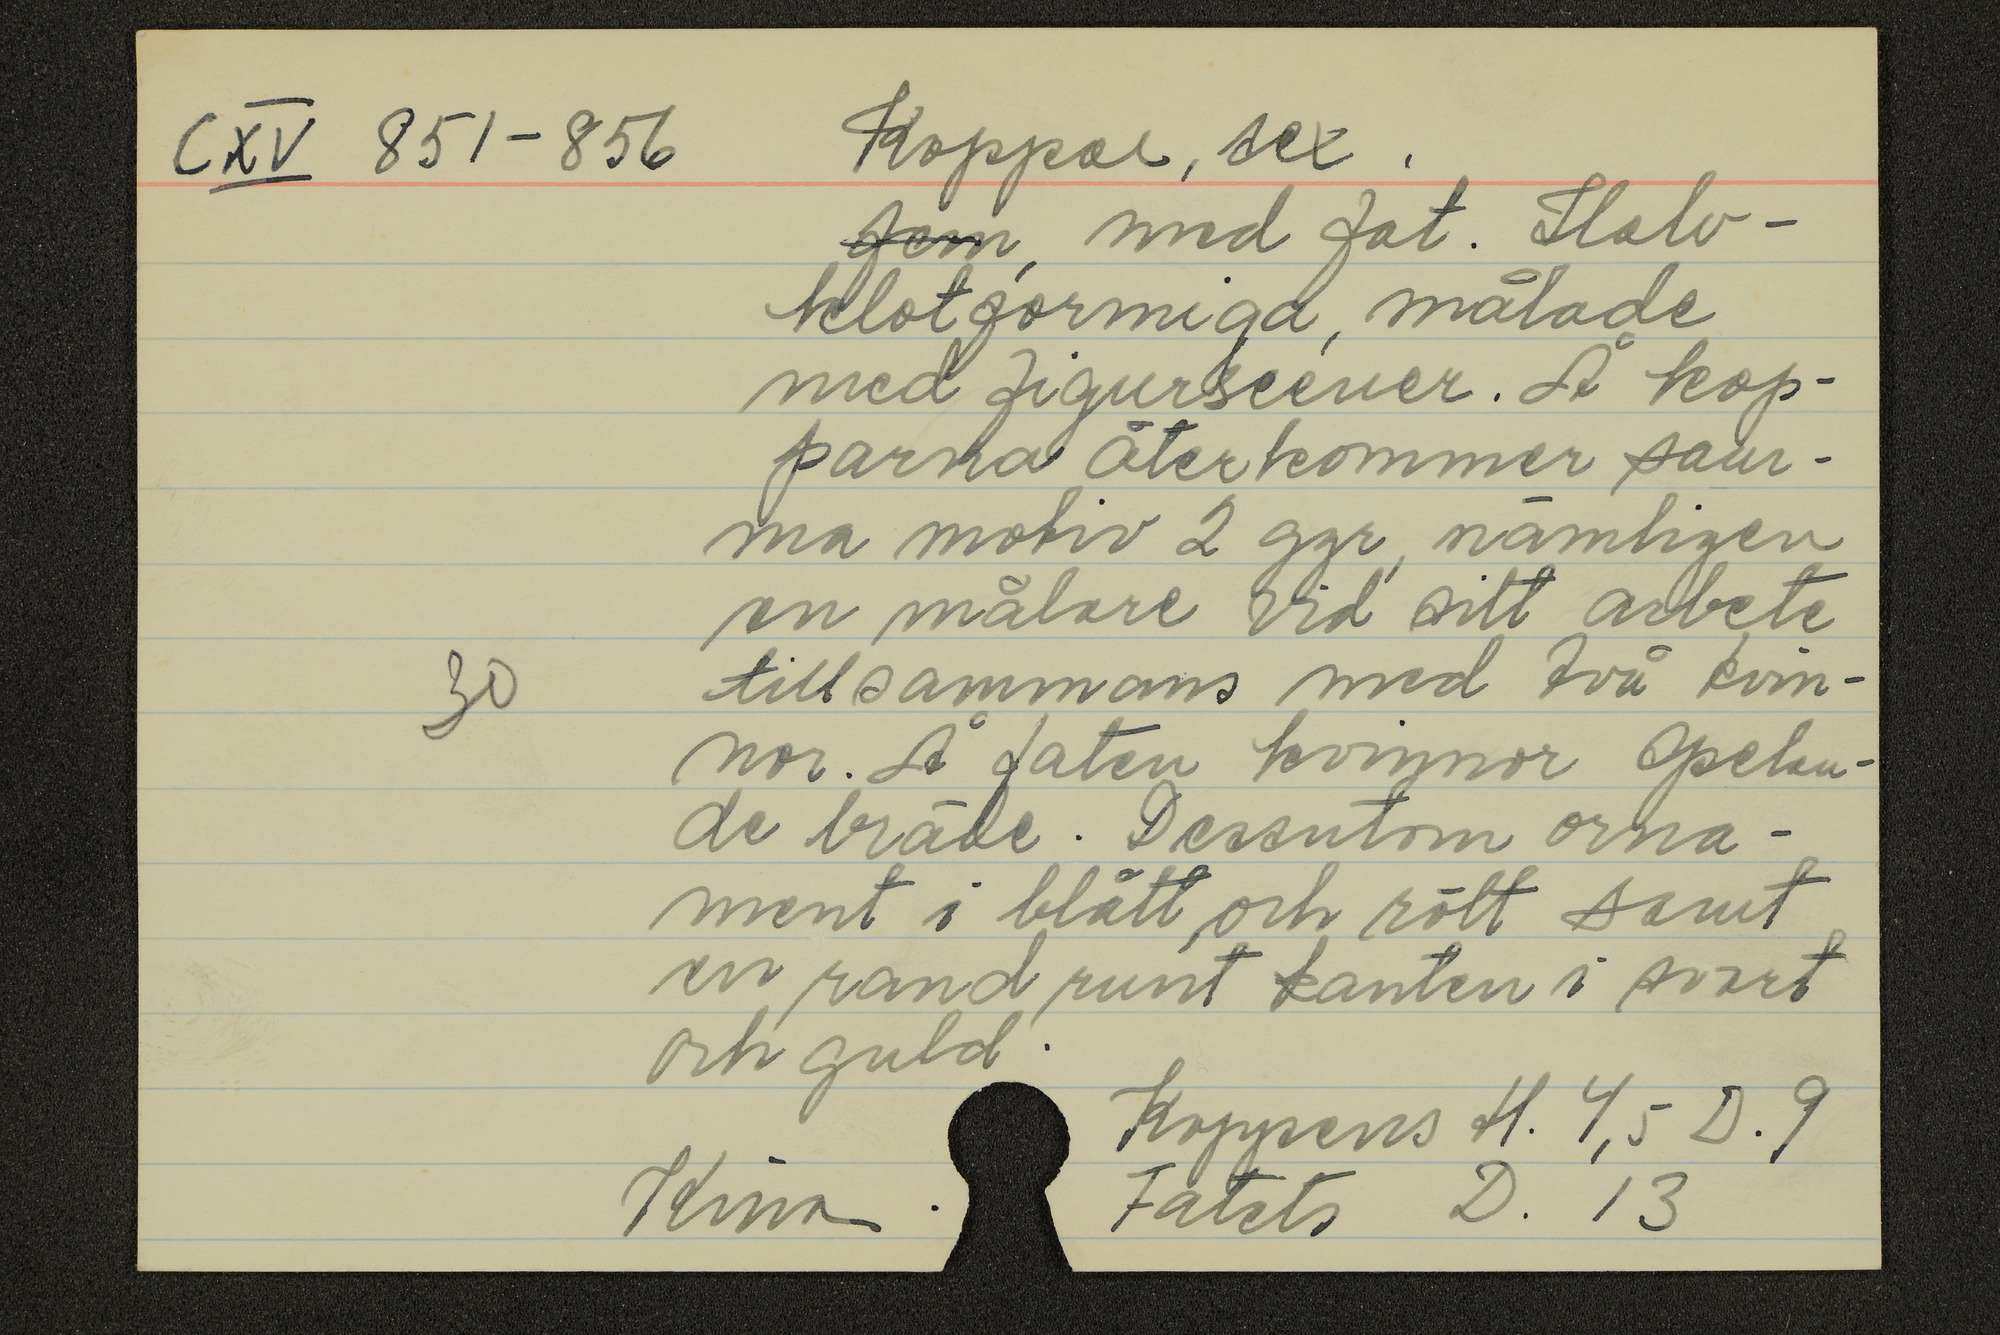 CXV 851-856 Koppar, sex.
fem, med fat. Halv-
klotformiga, målade
med figurscener. Å kop-
parna återkommer sam-
ma motiv 2 ggr, nämligen
en målare vid sitt arbete
30 tillsammans med två kvin-
nor. Å faten kvinnor spelan-
de bräde. Dessutom orna-
ment i blått, och rött samt
en rand runt kanten i svart
och guld.
Koppens H. 4,5 D. 9
Kina. Fatets D. 13